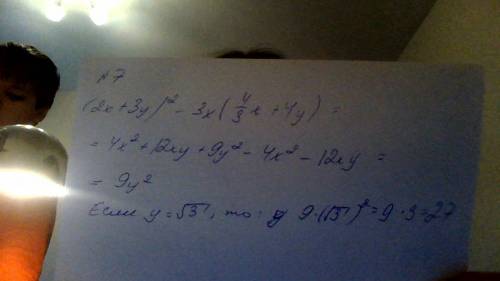 №7
(2x+3y)² - 3x(4/3x+4y) =
= 4x²+12xy+9y²-4x²-12xy =
= 9y²
Если y=√3, то: 9·(√3)²=9·3=27